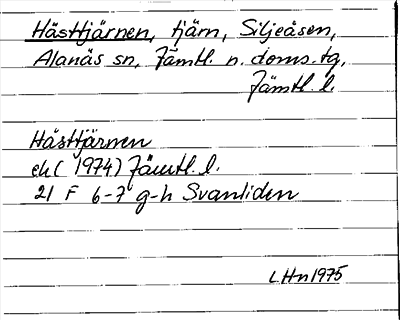 Hästtjärnen, tjärn, Siljeåsen,
Alanäs sn, Jämtl. n. doms. tg,
Jämtl. l.
Hästtjärnen
ek (1974) Jämtl. l.
21 F 6-7 g-h Svanliden
LHn 1975